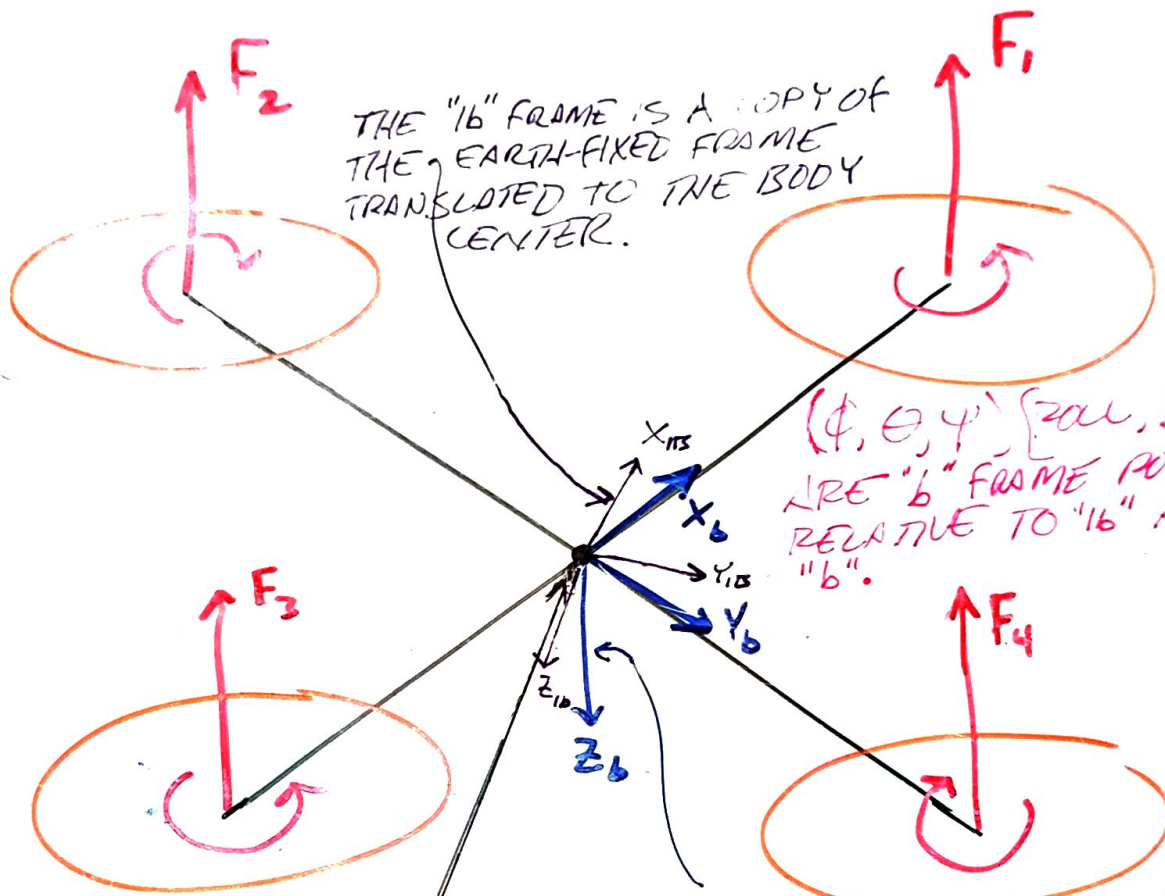 F₂
F₁
THE "1b" FRAME IS A COPY OF
THE EARTH-FIXED FRAME
TRANSLATED TO THE BODY
CENTER.
(ϕ, θ, ψ)
ARE "b" FRAME
RELATIVE TO "1b"
"b".
X₁B
X_b
Y₁B
Y_b
F₃
F₄
Z₁b
Z_b